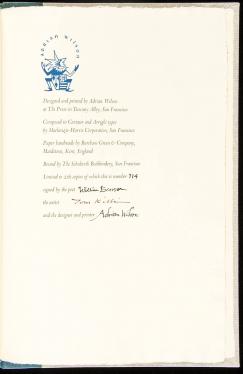 ADRIAN WILSON
Designed and printed by Adrian Wilson
at The Press in Tuscany Alley, San Francisco
Composed in Centaur and Arrighi types
by Mackenzie-Harris Corporation, San Francisco
Paper handmade by Barcham Green & Company,
Maidstone, Kent, England
Bound by The Schuberth Bookbindery, San Francisco
Limited to 226 copies of which this is number 714
signed by the poet William Everson
the artist Tom Killion
and the designer and printer Adrian Wilson